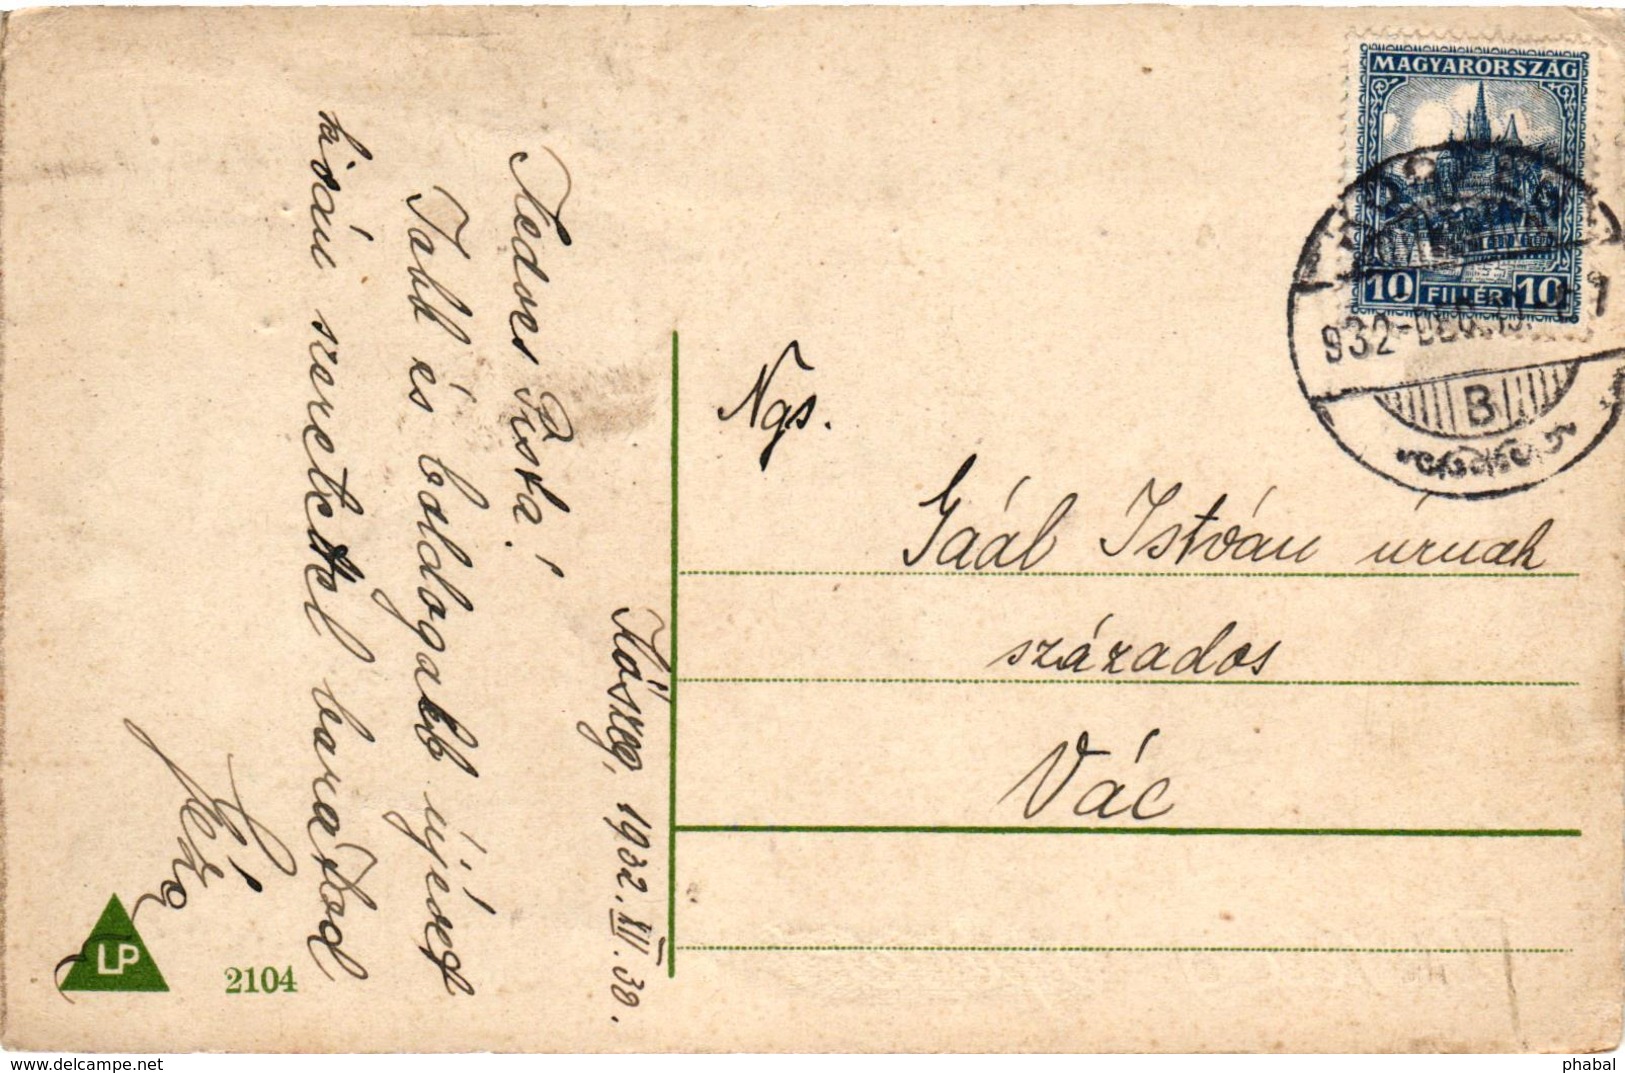 Kőszeg, 1932. XII. 30.
Kedves Pista!
Jobb és boldogabb újévet
kiván szeretettel barátod
Géza
LP
2104
MAGYARORSZÁG
10 FILLÉR 10
KŐSZEG
932-DEC.
B
Ngs.
Gaál István úrnak
százados
Vác
www.delcampe.net
phabal